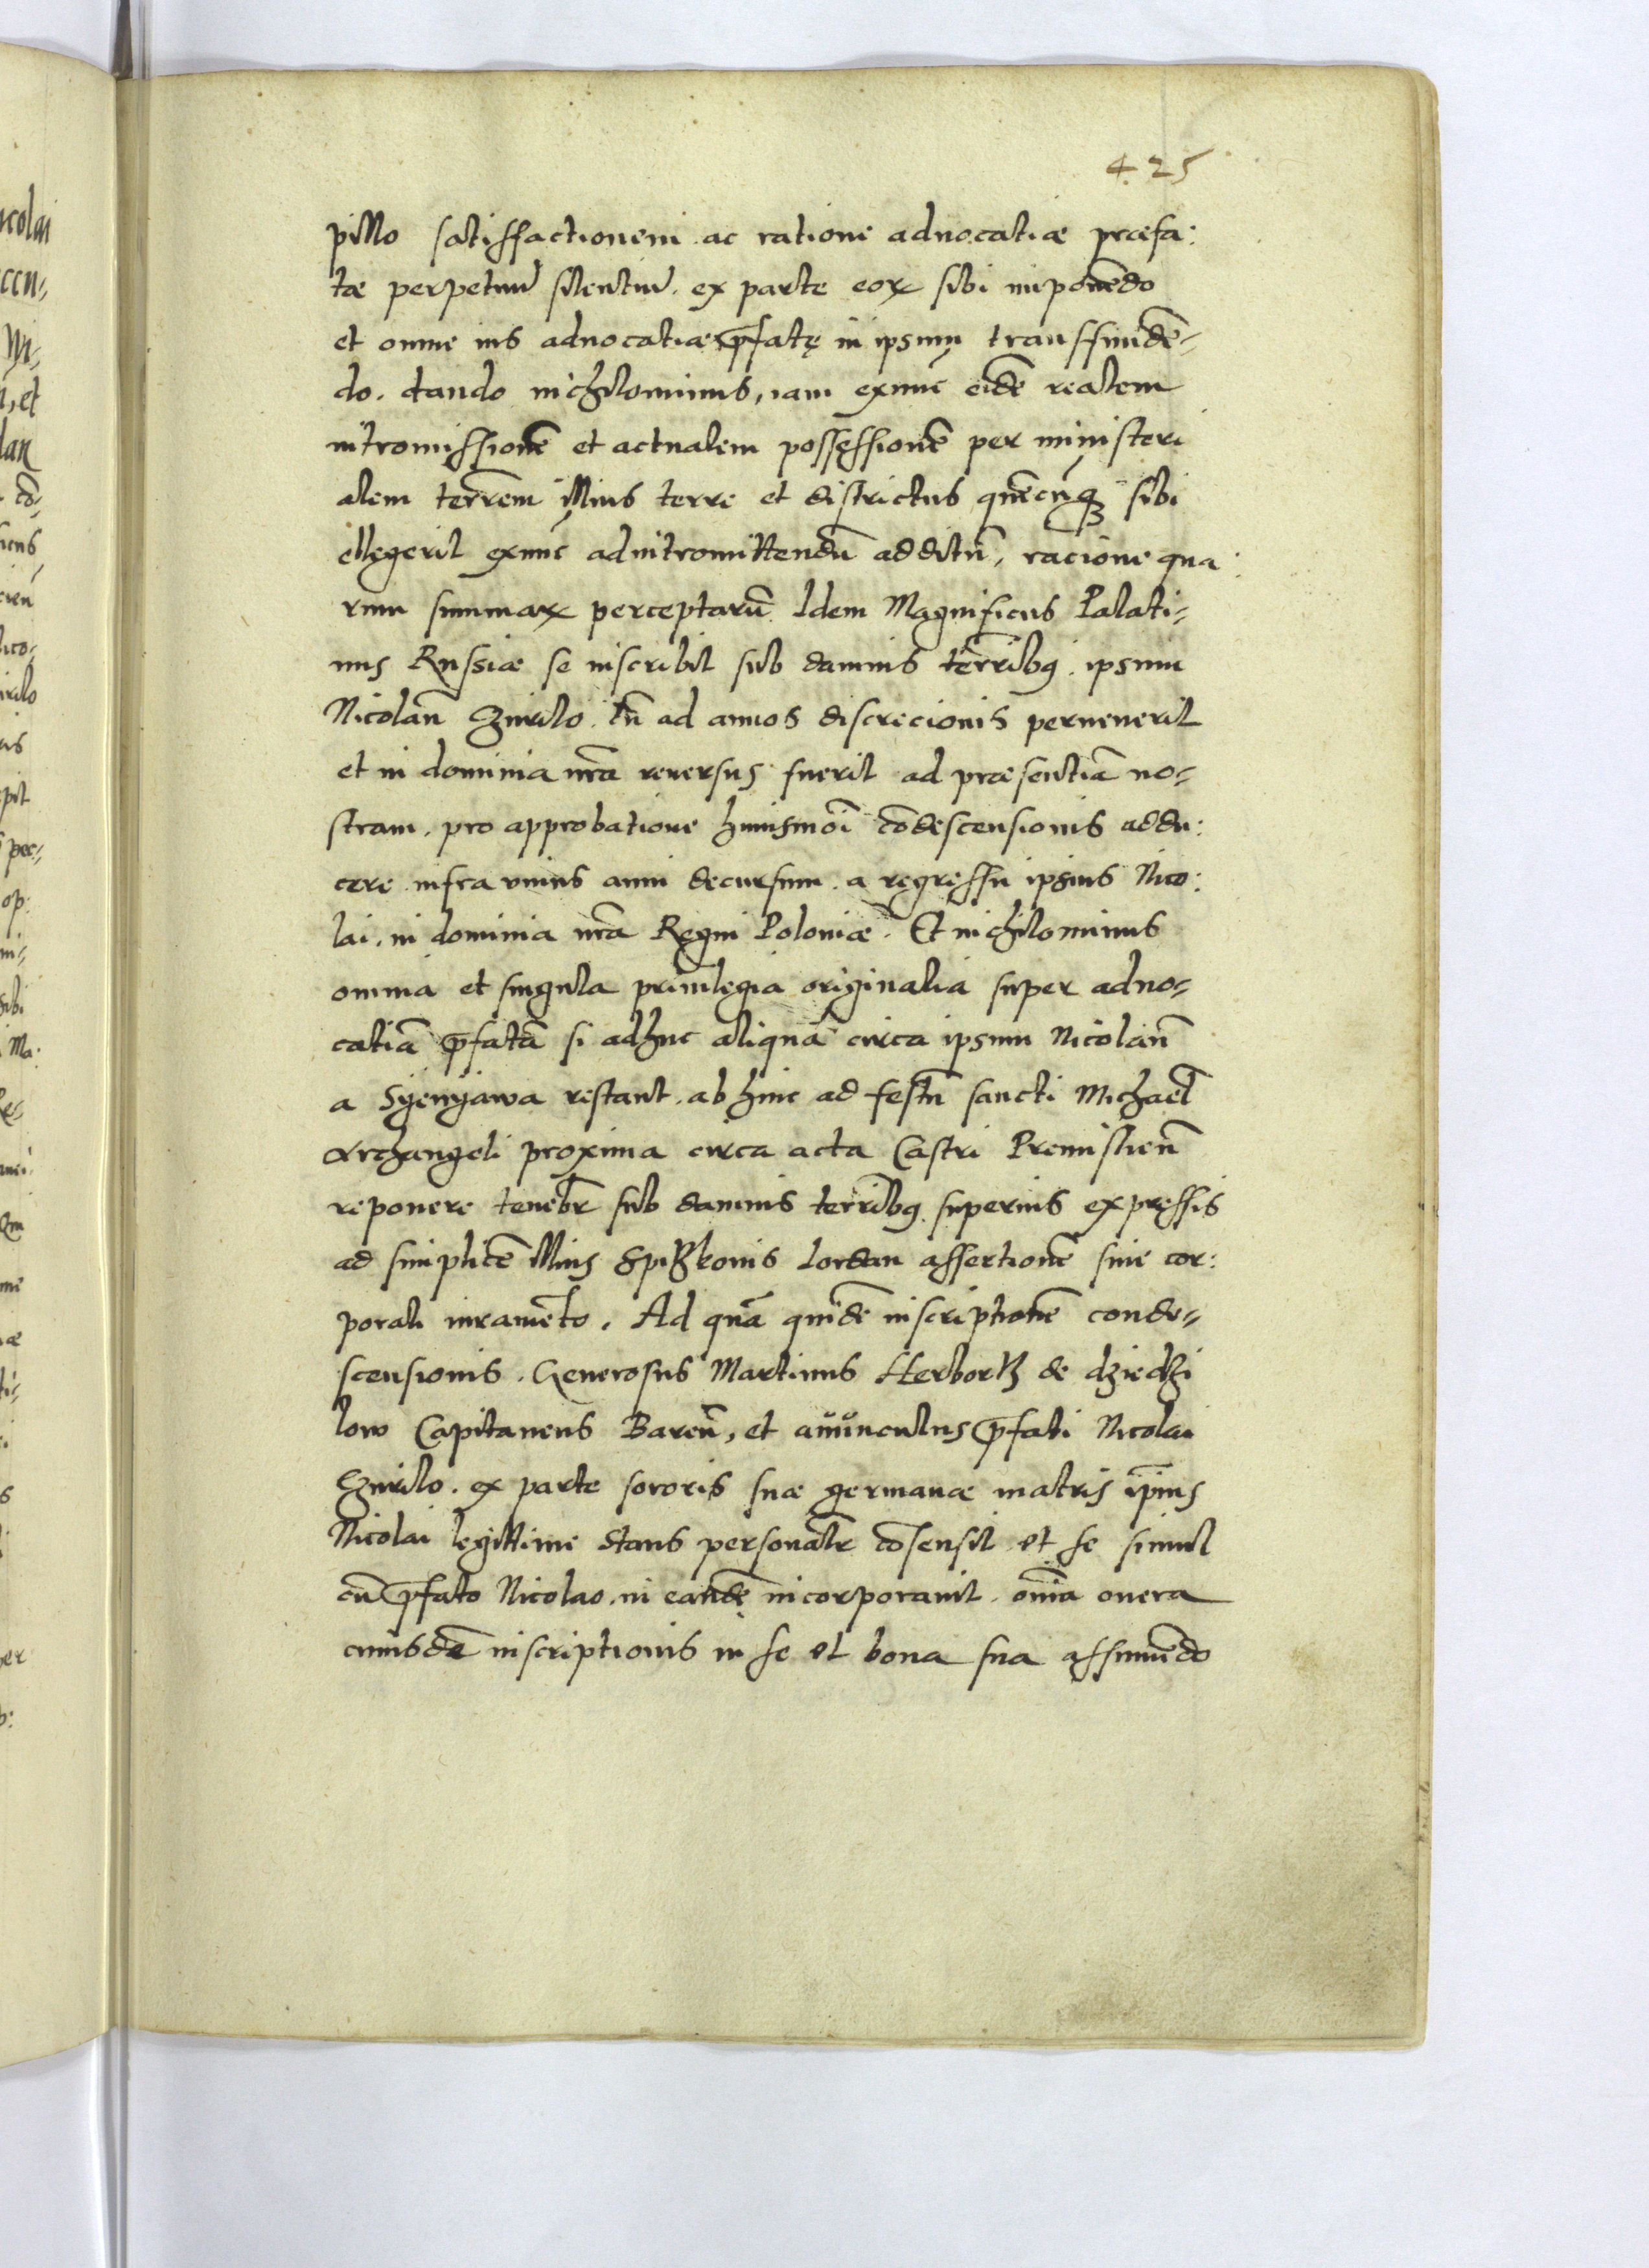 425
pillo satisffactionem ac ratione aduocatiæ præfa:
tæ perpetuū silentiū ex parte eoꝝ sibi imponēdo
et omne ius aduocatiæ p̄fatę in ipsum transffundē-
do. dando nichilominus, iam exnūc eidē realem
intromissionē et actualem possęssionē per ministeri
alem terrēm illius terre et districtus quēcūqꝫ sibi
ellęgerit exnūc ad intromittendū additū, racione qua:
rum summaꝝ perceptarū Idem Magnificus Palati-
nus Russiæ se inscribit sub damnis terrībꝫ. ipsum
Nicolaū Czurilo. tū ad annos discrecionis peruenerit
et in dominia nr̄a reuersus fuerit ad præsentiā no-
stram. pro approbatione huiusmōi cōdescensionis addu:
cere infra vnius anni decursum a ręgressu ipsius Nico:
lai. in dominia nr̄a Ręgni Poloniæ. Et nichilominus
omnia et singula priuilęgia originalia super aduo-
catiā p̄fatā si adhuc aliquā circa ipsum Nicolaū
a Syenyawa restant. ab hinc ad festū sancti Michael̄
Archangeli proxima circa acta Castri Premislieñ
reponere tenebr̄ sub damnis terrībꝫ superius expręssis
ad simplicē illius Spitkonis Iordan assertionē siue cor:
porali iuramēto. Ad quā quidē inscriptionē conde-
scensionis. Generosus Martinus Herborth de dziedzi
low Capitaneus Bareñ, et auunculus p̄fati Nicolai
Czurilo. ex parte sororis suæ germanæ matris ip̄ius
Nicolai legittime stans personalr̄ cōsensit et se simul
cū p̄fato Nicolao. in eandē incorporauit. om̄ia onera
cuiusdē inscriptionis in se et bona sua assumēdo